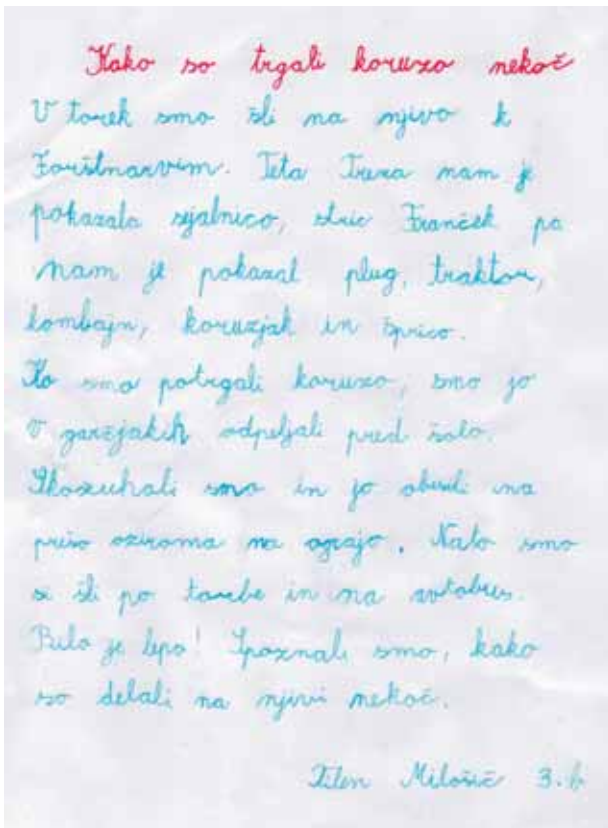 Kako so trgali koruzo nekoč
V torek smo šli na njivo k
Forštnarvim. Teta Treza nam je
pokazala sejalnico, stric Franček pa
nam je pokazal plug, traktor,
kombajn, koruzjak in šprico.
Ko smo potrgali koruzo, smo jo
v garejakih odpeljali pred šolo.
Skozuhali smo in jo obesili na
prišo oziroma na ograjo. Nato smo
si šli po torbe in na avtobus.
Bilo je lepo! Spoznali smo, kako
so delali na njivi nekoč.
Tilen Milošič 3. b